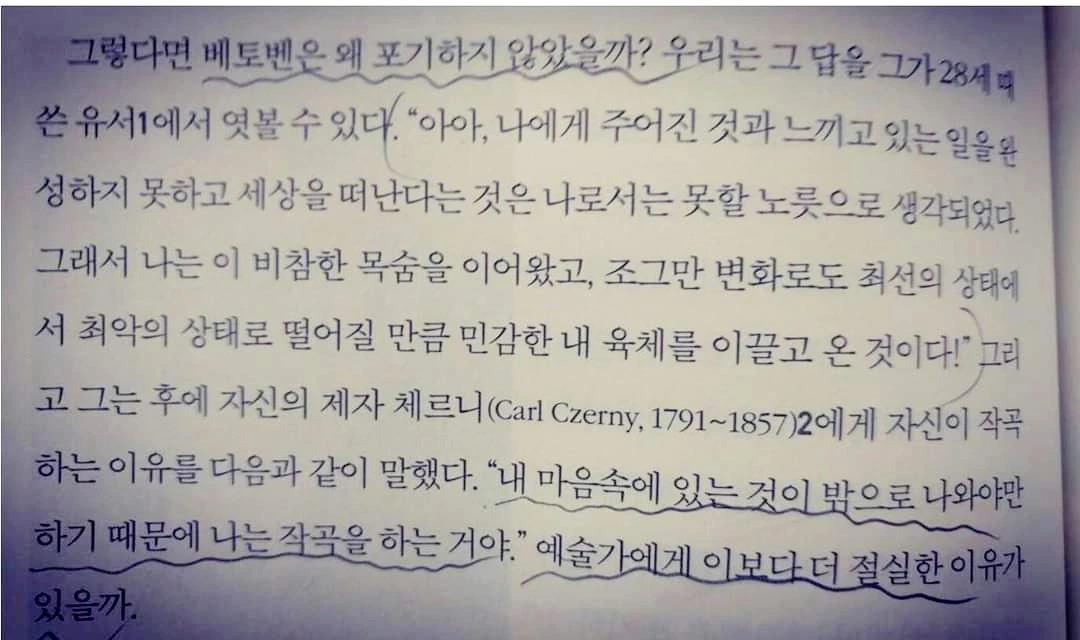 그렇다면 베토벤은 왜 포기하지 않았을까? 우리는 그 답을 그가 28세 때
쓴 유서1에서 엿볼 수 있다. “아아, 나에게 주어진 것과 느끼고 있는 일을 완
성하지 못하고 세상을 떠난다는 것은 나로서는 못할 노릇으로 생각되었다.
그래서 나는 이 비참한 목숨을 이어왔고, 조그만 변화로도 최선의 상태에
서 최악의 상태로 떨어질 만큼 민감한 내 육체를 이끌고 온 것이다!” 그리
고 그는 후에 자신의 제자 체르니(Carl Czerny, 1791~1857)2에게 자신이 작곡
하는 이유를 다음과 같이 말했다. “내 마음속에 있는 것이 밖으로 나와야만
하기 때문에 나는 작곡을 하는 거야.” 예술가에게 이보다 더 절실한 이유가
있을까.